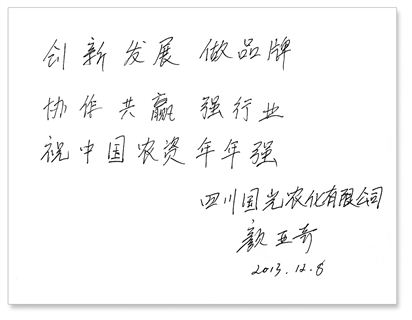 创新发展 做品牌
协作共赢 强行业
祝中国农资年年强
四川国光农化有限公司
颜亚奇
2013.12.8